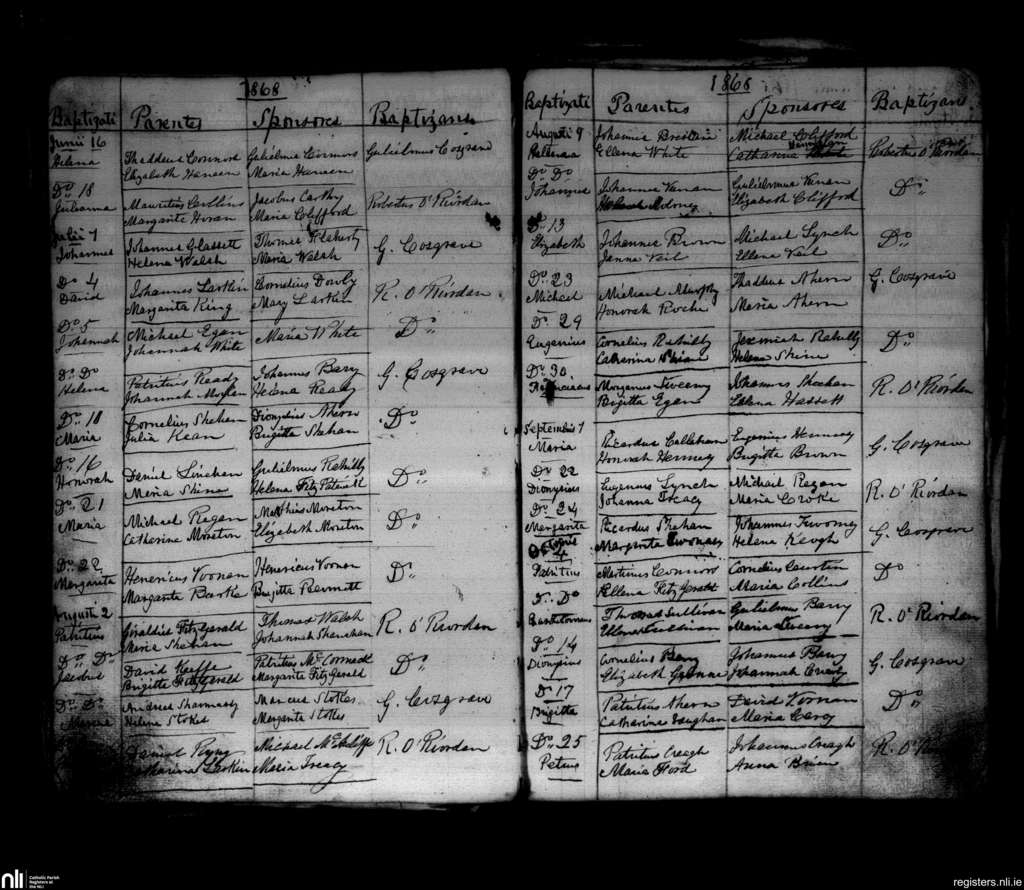 1868
Baptizati Parentes Sponsores Baptizans
Junii 16
Helena Thaddeus Connor Gulielmus Connors Gulielmus Cosgrave
Elizabeth Hansen Maria Hansen
Do 18
Julianna Mauritius Collins Jacobus Carthy Robertus O'Riordan
Margarita Horan Maria Clifford
Julii 1
Johannes Johannes Glassett Thomas Flaherty G. Cosgrave
Helena Walsh Maria Walsh
Do 4
David Johannes Larkin Cornelius Dowly R. O'Riordan
Margarita King Mary Larkin
Do 5
Johannah Michael Egan Maria White Do
Johannah White
Do Do
Helena Patritius Ready Johannes Bary G. Cosgrave
Johannah Helena Ready
Do 10
Maria Cornelius Shehan Dionysius Ahern Do
Julia Kean Brigitta Shehan
Do 16
Honorah Daniel Linehan Gulielmus Rahilly Do
Maria Shine Helena FitzPatrick
Do 21
Maria Michael Regan Matthias Moreton Do
Catherine Moreton Elizabeth Moreton
Do 22
Margarita Henericus Noonan Henericus Noonan Do
Margarita Burke Brigitta
Augusti 2
Patritius Giraldus FitzGerald Thomas Walsh R. O'Riordan
Maria Shehan Johannah Shanahan
Do Do
Jacobus David Keeffe Patritius McCormack Do
Brigitta FitzGerald Margarita FitzGerald
Do Do
Maria Andreas Marcus Stokes G. Cosgrave
Helena Stokes Margarita Stokes
Daniel Michael McAuliffe R. O'Riordan
Catharina Larkin Maria Treacy
1868
Baptizati Parentes Sponsores Baptizans
Augusti 9 Johannes Michael Clifford
Ellena White Catharina Robertus O'Riordan
Do Do
Johannes Johannes Gulielmus Do
Elizabeth Clifford
Do 13
Elizabeth Johannes Brown Michael Lynch Do
Ellena
Do 23
Michael Michael Murphy Thaddeus Ahern G. Cosgrave
Honorah Roche Maria Ahern
Do 29
Eugenius Cornelius Rahilly Jeremiah Rahilly Do
Catharina Helena Shine
Do 30
Morganus Sweeny Johannes Sheehan R. O'Riordan
Brigitta Egan Ellena Hassett
Septembris 1
Maria Ricardus Callahan Eugenius Hennesy G. Cosgrave
Honorah Hennesy Brigitta Brown
Do 22
Dionysius Eugenius Lynch Michael Regan R. O'Riordan
Johanna Treacy Maria Croke
Do 24
Margarita Ricardus Shehan Johannes Twomey G. Cosgrave
Margarita Twomey Helena Keogh
4
Patritius Martinus Connors Cornelius Do
Ellena FitzGerald Maria Collins
Do Do
Thomas Sullivan Gulielmus Barry R. O'Riordan
Ellena Sullivan Maria
Do 14
Dionysius Cornelius Bary Johannes Bary G. Cosgrave
Elizabeth Johannah
Do 17
Brigitta Patritius Ahern David Noonan Do
Catharina Vaughan Maria Carey
Do 25
Petrus Patritius Creagh Johannes Creagh R. O'
Maria Ford Anna Brien
nli
Catholic Parish
Registers at
the NLI
registers.nli.ie